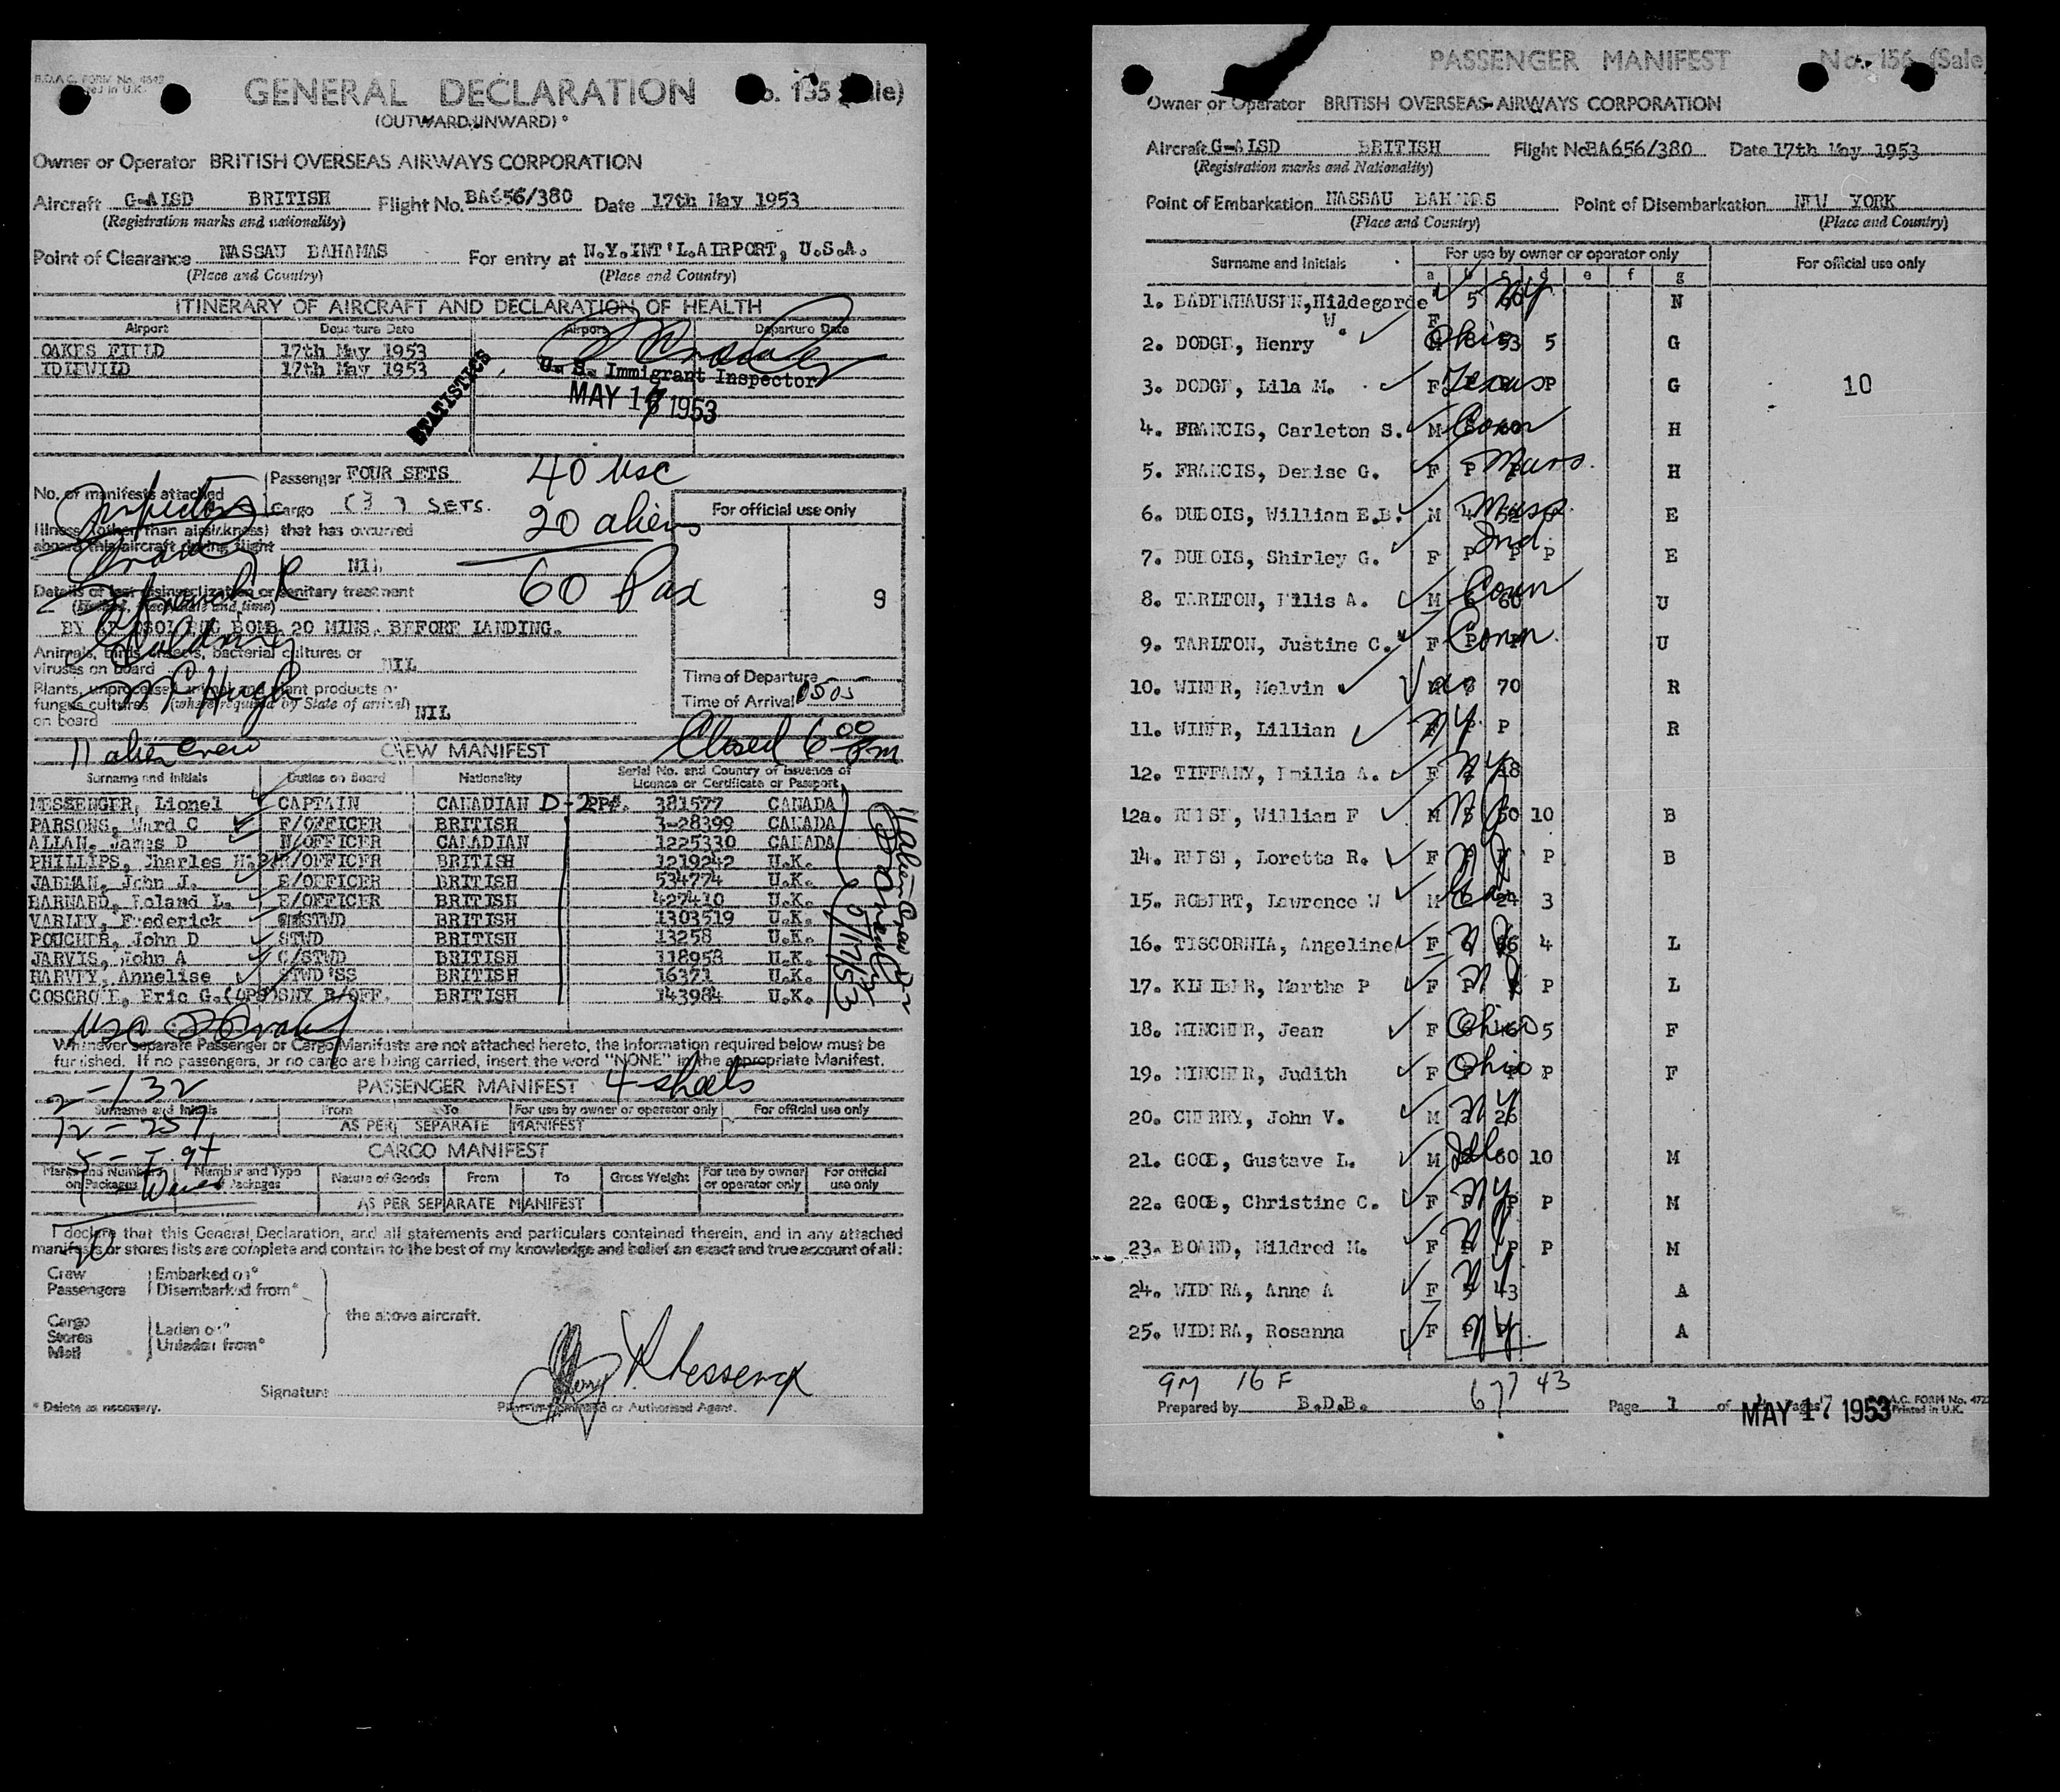 GENERAL DECLARATION
(OUTWARD/INWARD) *
Owner or Operator BRITISH OVERSEAS AIRWAYS CORPORATION
Aircraft G-AISD BRITISH Flight No. BA656/380 Date 17th May 1953
(Registration marks and nationality)
Point of Clearance NASSAU BAHAMAS For entry at N.Y.INT'L.AIRPORT, U.S.A.
(Place and Country) (Place and Country)
ITINERARY OF AIRCRAFT AND DECLARATION OF HEALTH
Airport Departure Date Airport Departure Date
OAKES FIELD 17th May 1953
IDLEWILD 17th May 1953
STATISTICS
U. S. Immigrant Inspector
MAY 17 1953
No. of manifests attached Passenger FOUR SETS
Cargo (3) SETS.
40 USC
20 aliens
60 Pax
Illness (other than airsickness) that has occurred
aboard this aircraft during flight
NIL
For official use only
9
Details of last disinsectization or sanitary treatment
(Method, place, date and time)
BY AEROSOL BOMB 20 MINS. BEFORE LANDING.
Animals, birds, insects, bacterial cultures or
viruses on board NIL
Plants, unprocessed animal and plant products or
fungus cultures (where required by State of arrival)
on board NIL
McHugh
Time of Departure
Time of Arrival 0505
Closed 6 00 pm
11 alien crew
CREW MANIFEST
Surname and Initials Duties on Board Nationality Serial No. and Country of Issuance of
Licence or Certificate or Passport
MESSENGER, Lionel CAPTAIN CANADIAN D-2 PP#. 381577 CANADA
PARSONS, Ward C F/OFFICER BRITISH 3-28399 CANADA
ALLAN, James D N/OFFICER CANADIAN 1225330 CANADA
PHILLIPS, Charles H. R/OFFICER BRITISH 1219242 U.K.
JARMAN, John J. E/OFFICER BRITISH 534774 U.K.
BARNARD, Roland L. E/OFFICER BRITISH 427410 U.K.
VARLEY, Frederick STWD BRITISH 1303519 U.K.
POUCHER, John D STWD BRITISH 13258 U.K.
JARVIS, John A C/STWD BRITISH 118958 U.K.
HARVEY, Annelise STWD'SS BRITISH 16371 U.K.
COSGROVE, Eric G. SNY R/OFF. BRITISH 143984 U.K.
11 Alien Crew D-2
5/17/53
Whenever separate Passenger or Cargo Manifests are not attached hereto, the information required below must be
furnished. If no passengers, or no cargo are being carried, insert the word "NONE" in the appropriate Manifest.
PASSENGER MANIFEST 4 sheets
2 - 132
Surname and Initials From To For use by owner or operator only For official use only
12 = 257
AS PER SEPARATE MANIFEST
CARGO MANIFEST
Marks and Numbers on Packages Number and Type of Packages Nature of Goods From To Gross Weight For use by owner or operator only For official use only
AS PER SEPARATE MANIFEST
20
I declare that this General Declaration, and all statements and particulars contained therein, and in any attached
manifests or stores lists are complete and contain to the best of my knowledge and belief an exact and true account of all:
Crew Embarked on*
Passengers Disembarked from*
the above aircraft.
Cargo
Stores Laden on*
Mail Unladen from*
Signature
* Delete as necessary. Pilot-in-Command or Authorised Agent.
PASSENGER MANIFEST No. 156 (Sale
Owner or Operator BRITISH OVERSEAS AIRWAYS CORPORATION
Aircraft G-AISD BRITISH Flight No BA656/380 Date 17th May 1953
(Registration marks and Nationality)
Point of Embarkation NASSAU BAHAMAS Point of Disembarkation NEW YORK
(Place and Country) (Place and Country)
Surname and Initials For use by owner or operator only For official use only
a b c d e f g
1. BADENHAUSEN, Hildegarde W. F 5 NY N
2. DODGE, Henry Ohio 53 5 G
3. DODGE, Lila M. F Texas P G 10
4. FRANCIS, Carleton S. M Conn H
5. FRANCIS, Denise G. F P Mass. H
6. DUBOIS, William E.B. M Mass E
7. DUBOIS, Shirley G. F P Ind P P E
8. TARLTON, Ellis A. M Conn 60 U
9. TARLTON, Justine C. F Conn U
10. WINER, Melvin Va 70 R
11. WINER, Lillian NY P R
12. TIFFANY, Emilia A. F NY 18
12a. REESE, William F M NY 50 10 B
14. REESE, Loretta R. F NY P B
15. ROBERT, Lawrence W M 24 3
16. TISCORNIA, Angeline F 6 NY 4 L
17. KLEIBER, Martha P F P P L
18. MINCHER, Jean F Ohio 5 F
19. MINCHER, Judith F Ohio P F
20. CHERRY, John V. M NY 26
21. GOOB, Gustave L. M 60 10 M
22. GOOB, Christine C. F NY P M
23. BOARD, Mildred M. F NY P P M
24. WIDERA, Anna A F 5 NY 43 A
25. WIDERA, Rosanna F NY A
9M 16F 677 43
Prepared by B.D.B. Page 1 of 4 Pages
MAY 17 1953
Printed in U.K.